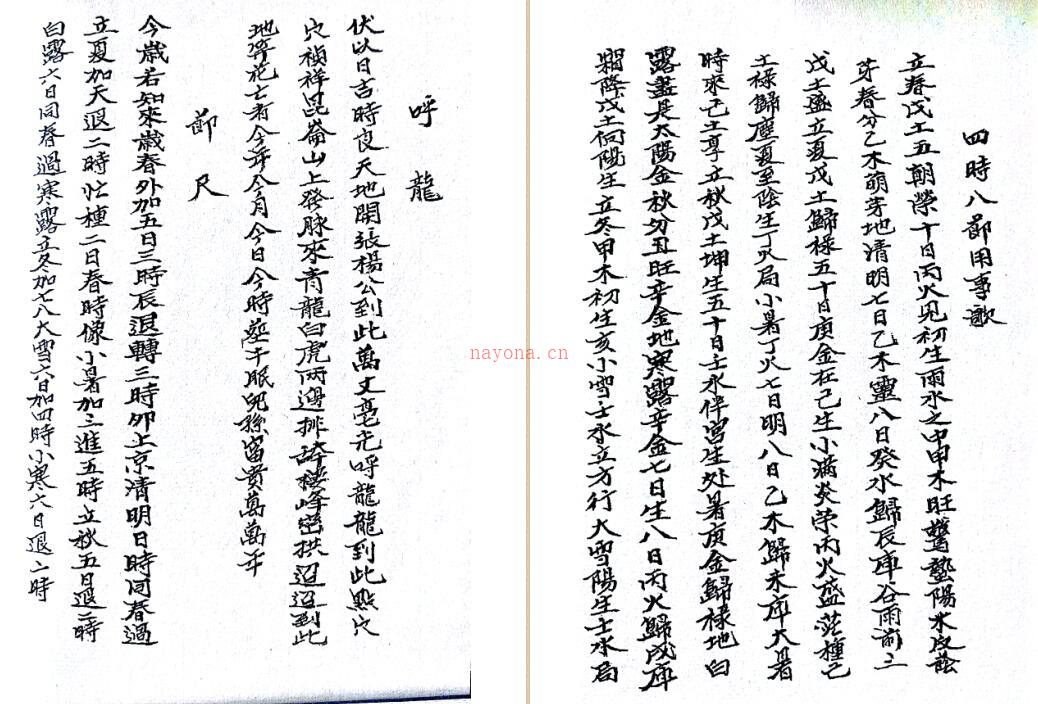 四時八節用事歌
立春戊土五朝榮十日丙火見初生雨水之中甲木旺驚蟄陽木皮
芽春分乙木萌芽地清明七日乙木靈八日癸水歸辰庫谷雨前三
戊土盛立夏戊土歸祿五十日庚金在己生小滿炎荣丙火盛茫種己
土祿歸塵夏至陰生丁火局小暑丁火七日明八日乙木歸未庫大暑
時來己土亨立秋戊土坤生五十日壬水伴宮生处暑庚金歸祿地白
露盡是太陽金秋分丑旺辛金地寒露辛金七日生八日丙火歸戌庫
霜降戊土向陽生立冬甲木初生亥小雪士水立方行大雪陽生士水局
呼龍
伏以日吉時良天地開張楊公到此萬丈毫光呼龍龍到此點穴
穴禎祥昆崙山上發脉來青龍白虎兩邊排峰密拱迢迢到此
地葬花亡者今年今月今日今時塟千眠兒孫富貴萬萬年
節尺
今歲若知來歲春外加五日三時辰退轉三時卯上京清明日時同春過
立夏加天退二時忙種二日春時像小暑加三進五時立秋五日退二時
白露六日同春過寒露立冬加七八大雪六日加四時小寒六日退二時
nayona.cn